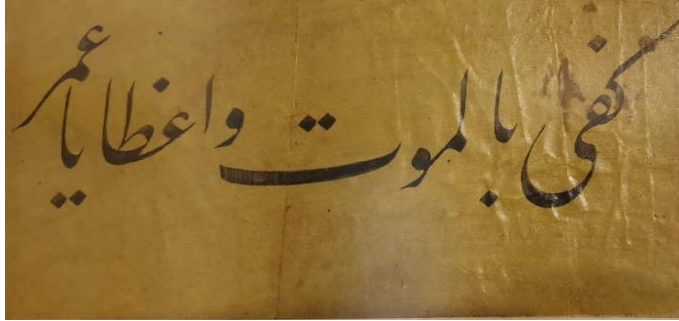 كفى بالموت واعظا يا عمر